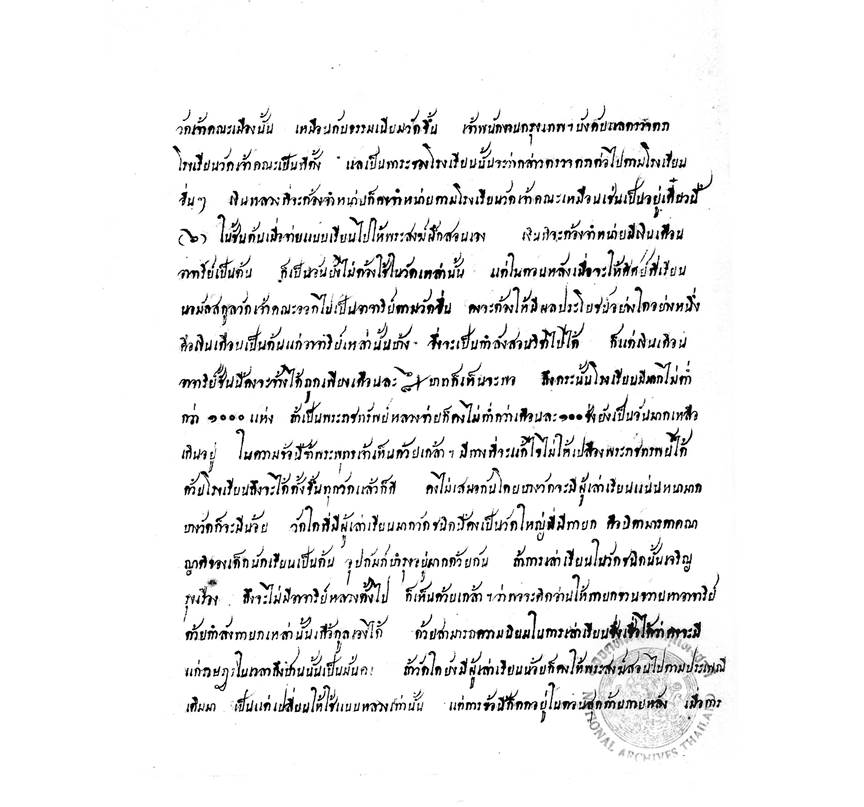 วัดเจ้าคณะเมืองนั้น เหมือนกับธรรมเนียมวัดขึ้น เจ้าพนักงานกรุงเทพฯ บังคับแลตรวจตรา
โรงเรียนวัดเจ้าคณะเป็นที่ตั้ง แลเป็นภาระของโรงเรียนนั้นจะว่ากล่าวตรวจตราต่อไปตามโรงเรียน
อื่นๆ เงินหลวงที่จะต้องจำหน่ายก็คงจำหน่ายตามโรงเรียนวัดเจ้าคณะเหมือนเช่นเป็นอยู่เดี๋ยวนี้
(๖) ในชั้นต้นเมื่อจ่ายแบบเรียนไปให้พระสงฆ์ฝึกสอนเอง เงินที่จะต้องจำหน่ายมีเงินเดือน
อาจารีย์เป็นต้น ก็เป็นอันยังไม่ต้องใช้ในวัดเหล่านั้น แต่ในตอนหลังเมื่อจะให้ศิศย์ที่เรียน
นอมัลสกูลวัดเจ้าคณะออกไปเป็นอาจารีย์ตามวัดอื่น คงจะต้องให้มีผลประโยชน์อย่างใดอย่างหนึ่ง
คือเงินเดือนเป็นต้นแก่อาจารีย์เหล่านั้นบ้าง จึ่งจะเป็นกำลังสอนวิชาไปได้ ก็แต่เงินเดือน
อาจารีย์ชั้นนี้คงจะจ้างได้ถูกเพียงเดือนละ บาทก็เห็นจะพอ ถึงกระนั้นโรงเรียนมีมากไม่ต่ำ
กว่า ๑๐๐๐ แห่ง ถ้าเป็นพระราชทรัพย์หลวงจ่ายก็คงไม่ต่ำกว่าเดือนละ ๑๐๐ ชั่งยังเป็นอันมากเหลือ
เกินอยู่ ในความข้อนี้ข้าพระพุทธเจ้าเห็นด้วยเกล้าฯ มีทางที่จะแก้ไขไม่ให้เปลืองพระราชทรัพย์ได้
ด้วยโรงเรียนถึงจะได้ตั้งขึ้นทุกวัดแล้วก็ดี คงไม่เสมอกันโดยบางวัดจะมีผู้เล่าเรียนแน่นหนามาก
บางวัดก็จะมีน้อย วัดใดที่มีผู้เล่าเรียนมากวัดชนิดนี้คงเป็นวัดใหญ่ที่มีทายก คือบิดามารดาคณา
ญาติของเด็กนักเรียนเป็นต้น อุปถัมภ์บำรุงอยู่มากด้วยกัน ถ้าการเล่าเรียนในวัดชนิดนั้นเจริญ
รุ่งเรือง ถึงจะไม่มีอาจารีย์หลวงตั้งไป ก็เห็นด้วยเกล้าฯ ว่าพอจะคิดอ่านให้ทายกขวนขวายหาอาจารีย์
ด้วยกำลังทายกเหล่านั้นเกื้อกูลเองได้ ด้วยสามารถความนิยมในการเล่าเรียนซึ่งเชื่อได้ว่าคงจะมี
แก่ราษฎรในเวลาถึงเช่นนั้นเป็นมั่นคง ถ้าวัดใดยังมีผู้เล่าเรียนน้อยก็คงให้พระสงฆ์สอนไปตามประเพณี
เดิมมา เป็นแต่เปลี่ยนให้ใช้แบบหลวงเท่านั้น แต่การข้อนี้คิดอยู่ในตอนสุดท้ายภายหลัง เมื่อการ
หอจดหมายเหตุแห่งชาติ
NATIONAL ARCHIVES THAILAND